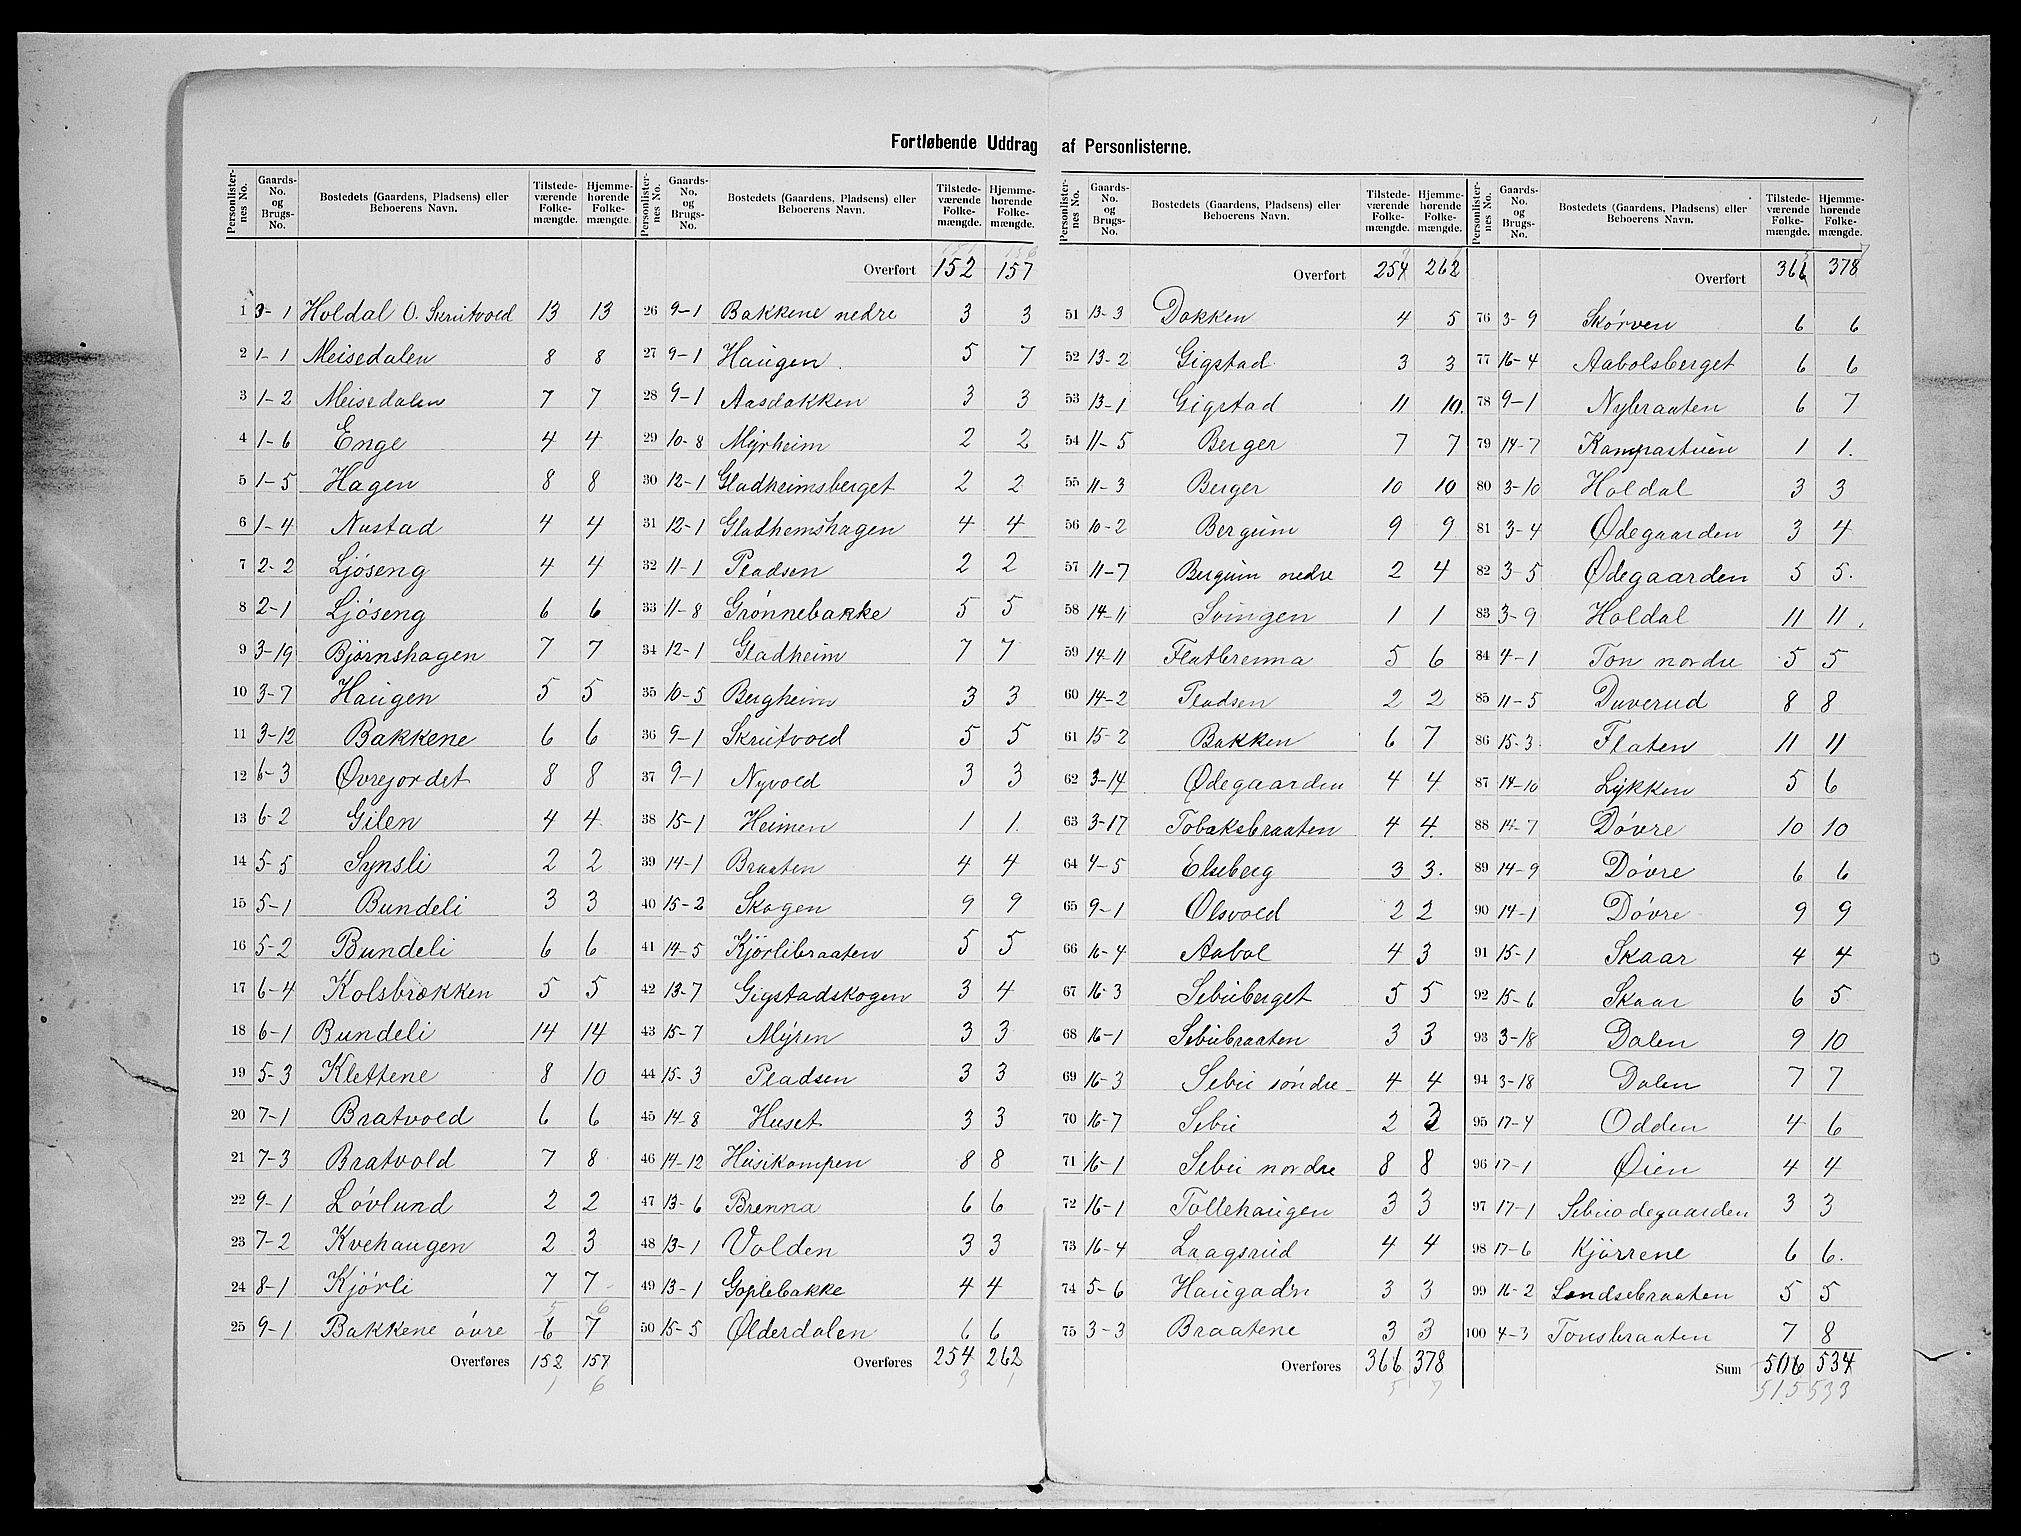 Fortløbende Uddrag af Personlisterne.
Personlister-nes No. Gaards-No. og Brugs-No. Bostedets (Gaardens, Pladsens) eller Beboerens Navn. Tilstede-værende Folke-mængde. Hjemme-hørende Folke-mængde.
1 3-1 Holdal O. Skrutvold 13 13
2 1-1 Meisedalen 8 8
3 1-2 Meisedalen 7 7
4 1-6 Enge 4 4
5 1-5 Hagen 8 8
6 1-4 Nustad 4 4
7 2-2 Ljöseng 4 4
8 2-1 Ljöseng 6 6
9 3-19 Björnshagen 7 7
10 3-7 Haugen 5 5
11 3-12 Bakkene 6 6
12 6-3 Øvrejordet 8 8
13 6-2 Gilen 4 4
14 5-5 Synsli 2 2
15 5-1 Bundeli 3 3
16 5-2 Bundeli 6 6
17 6-4 Kolsbrækken 5 5
18 6-1 Bundeli 14 14
19 5-3 Klettene 8 10
20 7-1 Bratvold 6 6
21 7-3 Bratvold 7 8
22 9-1 Lövlund 2 2
23 7-2 Kvehaugen 2 3
24 8-1 Kjörli 7 7
5 6
25 9-1 Bakkene övre 6 7
Overføres 152 157
1 6
Personlister-nes No. Gaards-No. og Brugs-No. Bostedets (Gaardens, Pladsens) eller Beboerens Navn. Tilstede-værende Folke-mængde. Hjemme-hørende Folke-mængde.
151 156
Overført 152 157
26 9-1 Bakkene nedre 3 3
27 9-1 Haugen 5 7
28 9-1 Aasdokken 3 3
29 10-8 Myrheim 2 2
30 12-1 Gladheimsberget 2 2
31 12-1 Gladhemshagen 4 4
32 11-1 Pladsen 2 2
33 11-8 Grönnebakke 5 5
34 12-1 Gladheim 7 7
35 10-5 Bergheim 3 3
36 9-1 Skrutvold 5 5
37 9-1 Nyvold 3 3
38 15-1 Heimen 1 1
39 14-1 Braaten 4 4
40 15-2 Skogen 9 9
41 14-5 Kjörlibraaten 5 5
42 13-7 Gigstadskogen 3 4
43 15-7 Myren 3 3
44 15-3 Pladsen 3 3
45 14-8 Huset 3 3
46 14-12 Husikampen 8 8
47 13-6 Brenna 6 6
48 13-1 Volden 3 3
49 13-1 Goplebakke 4 4
50 15-5 Ølderdalen 6 6
Overføres 254 262
3 1
Personlister-nes No. Gaards-No. og Brugs-No. Bostedets (Gaardens, Pladsens) eller Beboerens Navn. Tilstede-værende Folke-mængde. Hjemme-hørende Folke-mængde.
Overført 254 262
51 13-3 Dokken 4 5
52 13-2 Gigstad 3 3
53 13-1 Gigstad 11 10.
54 11-5 Berger 7 7
55 11-3 Berger 10 10
56 10-2 Bergum 9 9
57 11-7 Bergum nedre 2 4
58 14-11 Svingen 1 1
59 14-11 Flatbrenna 5 6
60 14-2 Pladsen 2 2
61 15-2 Bakken 6 7
62 3-14 Ødegaarden 4 4
63 3-17 Tobaksbraaten 4 4
64 4-5 Elseberg 3 3.
65 9-1 Olsvold 2 2
66 16-4 Aabol 4 3
67 16-3 Sebuberget 5 5
68 16-1 Sebubraaten 3 3
69 16-3 Sebu söndre 4 4
70 16-7 Sebu 2 2
71 16-1 Sebu nordre 8 8
72 16-1 Tollehaugen 3 3
73 16-4 Laagsrud 4 4
74 5-6 Haugadn 3 3
75 3-3 Braatene 3 3
Overføres 366 378
5 7
Personlister-nes No. Gaards-No. og Brugs-No. Bostedets (Gaardens, Pladsens) eller Beboerens Navn. Tilstede-værende Folke-mængde. Hjemme-hørende Folke-mængde.
Overført 366 378
76 3-9 Skörven 6 6
77 16-4 Aabolsberget 6 6
78 9-1 Nybraaten 6 7
79 14-7 Kampastuen 1 1.
80 3-10 Holdal 3 3
81 3-4 Ødegaarden 3 4
82 3-5 Ødegaarden 5 5.
83 3-9 Holdal 11 11.
84 4-1 Ton nordre 5 5
85 11-5 Duverud 8 8
86 15-3 Flaten 11 11
87 14-10 Lykken 5 6
88 14-7 Dövre 10 10
89 14-9 Dövre 6 6
90 14-1 Dövre 9 9
91 15-1 Skaar 4 4
92 15-6 Skaar 6 5
93 3-18 Dalen 9 10
94 3-18 Dalen 7 7
95 17-4 Odden 4 6
96 17-1 Øien 4 4
97 17-1 Sebuödegaarden 3 3
98 17-6 Kjörrene 6 6.
99 16-2 Sondsebraaten 5 5
100 4-3 Tonsbraaten 7 8
Sum 506 534
515 533